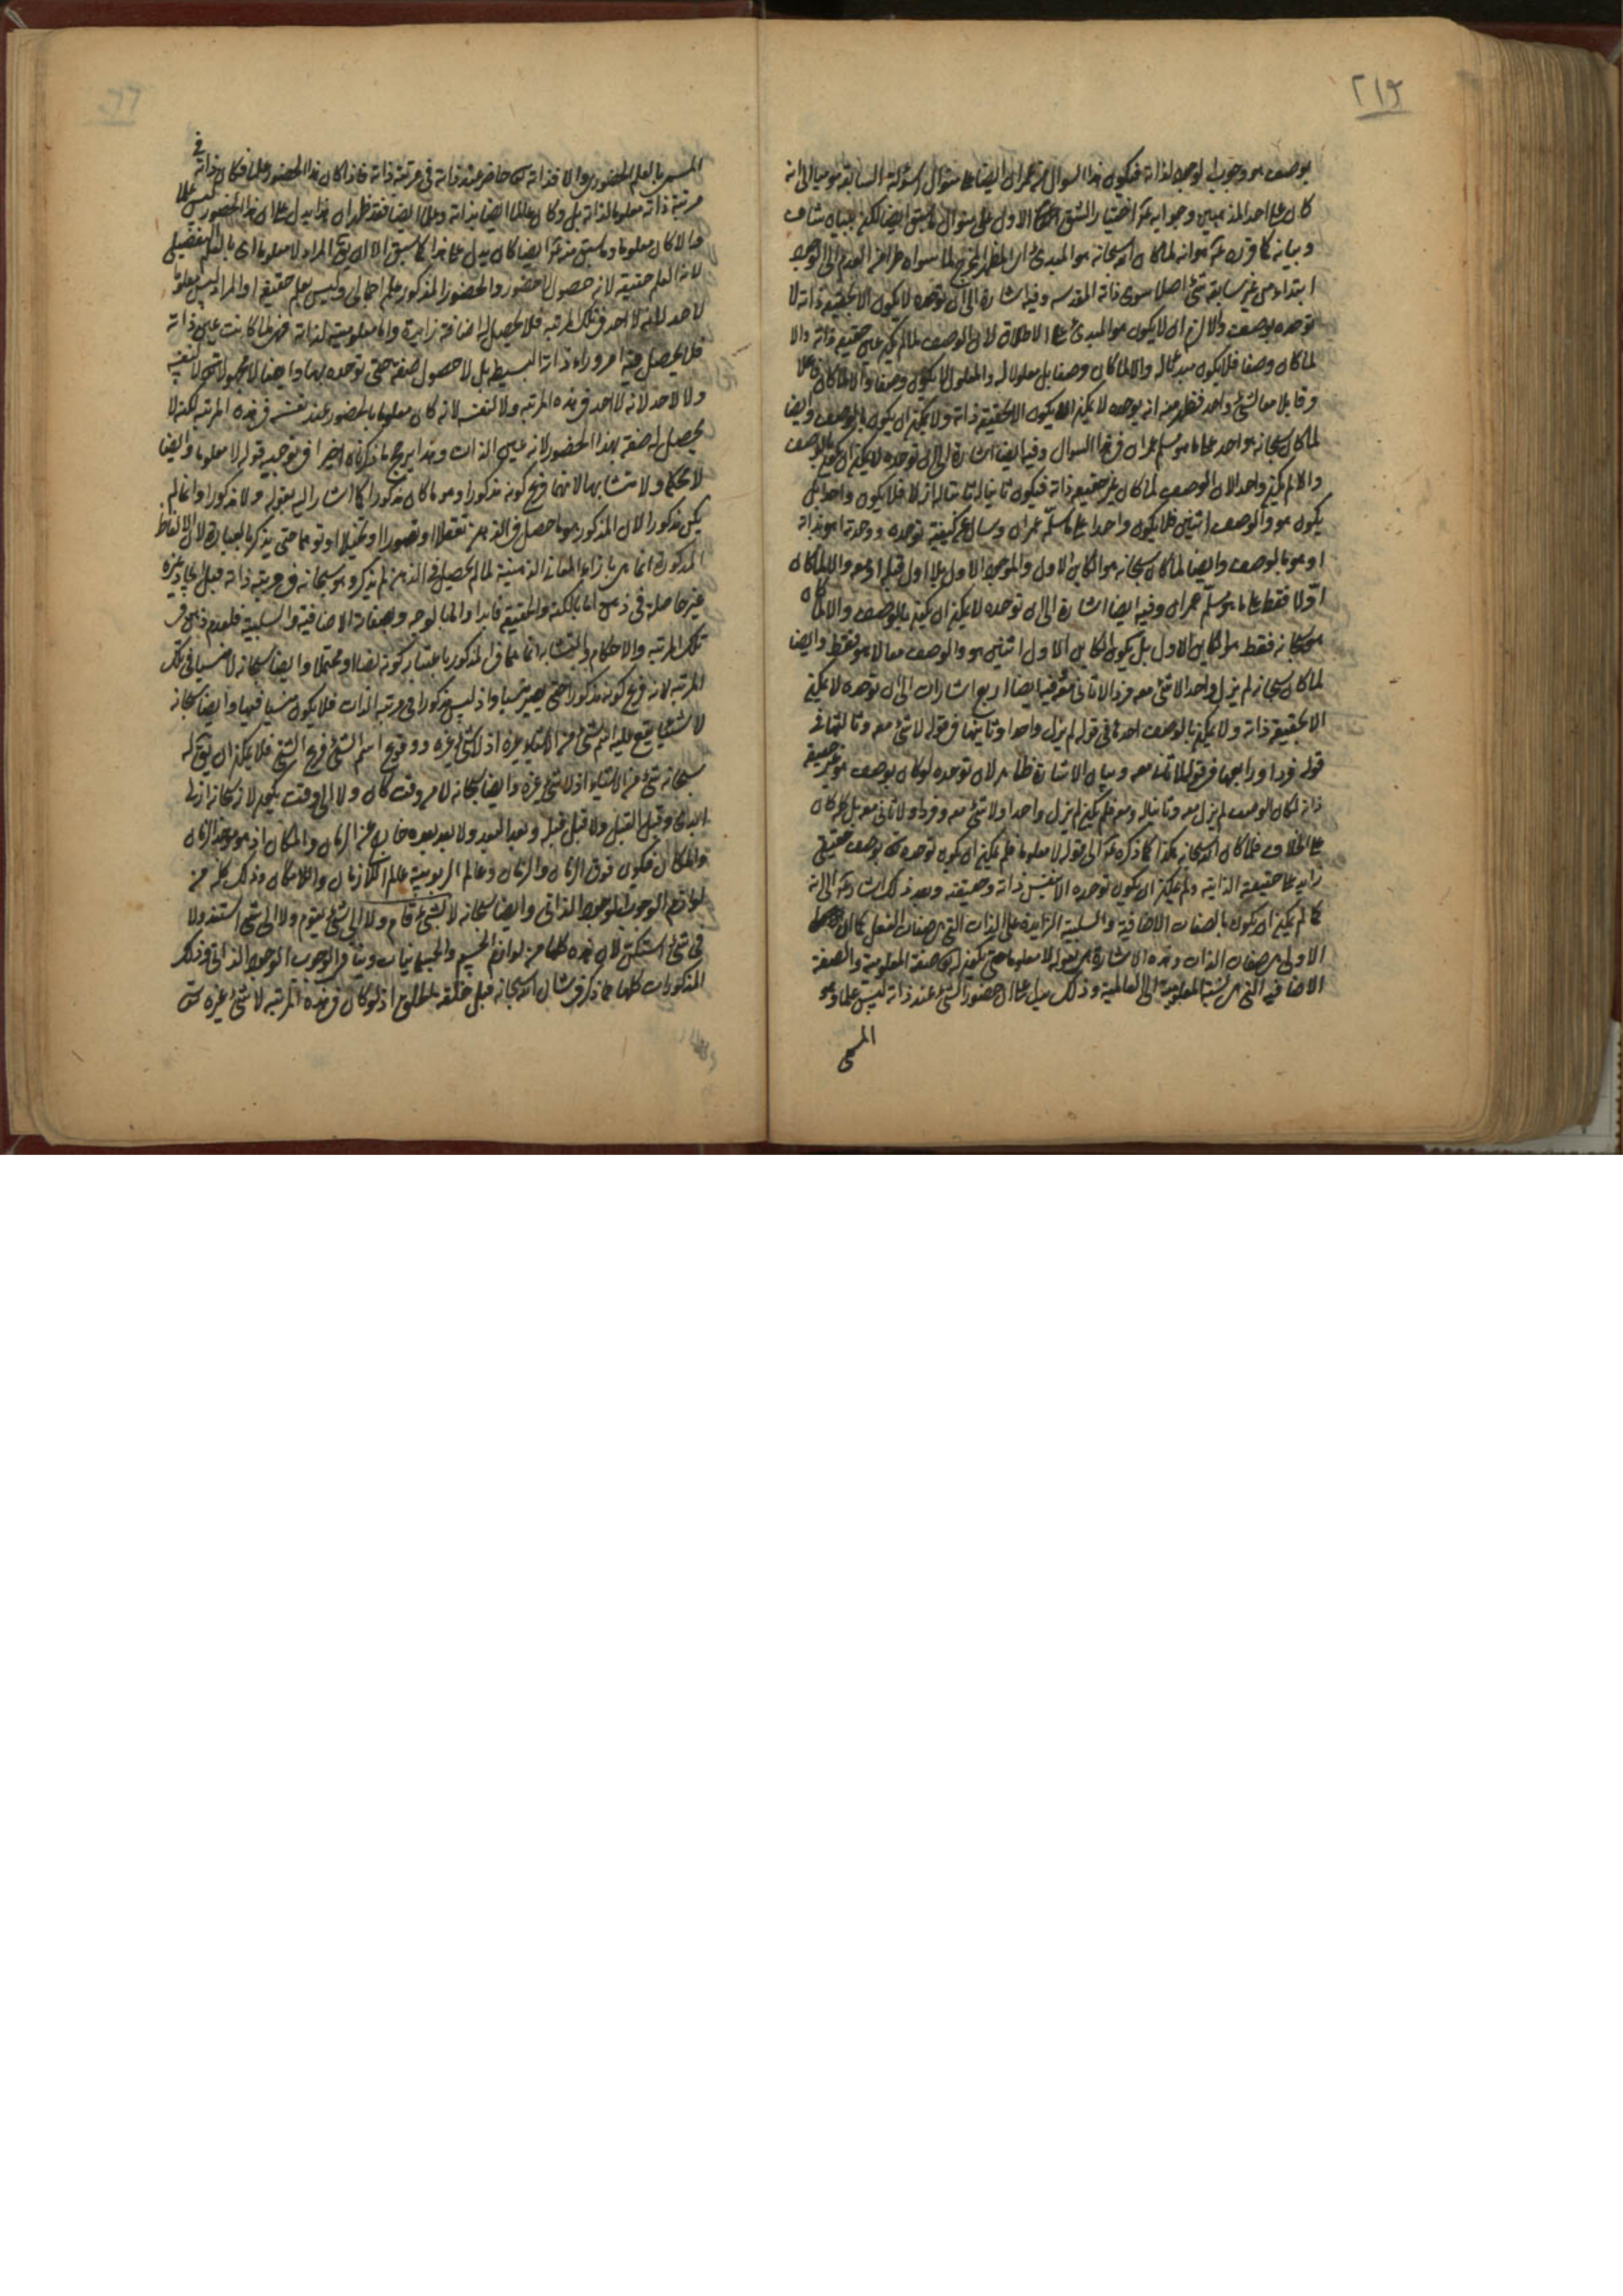 ٢١٩
بوصف هو وجوب الوجود لذاته فيكون هذا السوال من عمران ايضا على منوال اسولته السابقة موميا الى انه
كان على احد المذهبين وجوابه اختيار الشق الاول على منوال ما سبق ايضا لكن ببيان شاف
وبيانه كما قرره هو انه لما كان الله سبحانه هو المبدئ اى المظهر المخرج لما سواه طرا من العدم الى الوجود
ابتداء من غير سابقة شئ اصلا سوى ذاته المقدسه وفيه اشارة الى ان توحده لا يكون الا بحقيقة ذاته لا
توحده بوصف والا لزم ان لا يكون هو المبدئ على الاطلاق لان الوصف لما لم يكن عين حقيقة ذاته والا
لما كان وصفا فلا يكون مبدئا له والا لما كان وصفا بل معلولا له والمعلول لا يكون وصفا والا لكان فاعلا
وقابلا معا لشئ واحد فظهر منه انه توحده لا يمكن الا يكون الا بحقيقة ذاته ولا يمكن ان يكون بالوصف وايضا
لما كان سبحانه هو واحد على ما هو مسلم عمران فى هذا السوال وفيه ايضا اشارة الى ان توحده لا يمكن ان يكون بالوصف
والا لم يكن واحدا لان الوصف لما كان غير حقيقة ذاته فيكون ثانيا له ثابتا له ازلا فلا يكون واحدا بل
يكون هو والوصف اثنين فلا يكون واحدا على ما سلمه عمران وسال عن كيفية توحده ووحدته اهو بذاته
او هو بالوصف وايضا لما كان سبحانه هو الكاين الاول والموجود الاول بلا اول قبله او معه والا لما كان
اولا فقط على ما هو سلم عمران وفيه ايضا اشارة الى ان توحده لا يمكن ان يكون بالوصف والا لما كان
سبحانه فقط هو الكاين الاول بل يكون الكاين الاول اثنين هو والوصف معا لا هو فقط وايضا
لما كان سبحانه لم يزل واحدا لا شئ معه فردا لا ثانى معه وفيه ايضا اربع اشارات الى ان توحده لا يمكن
الا بحقيقة ذاته ولا يمكن بالوصف احدها فى قوله لم يزل واحدا وثانيتها فى قوله لا شئ معه وثالثها فى
قوله فردا ورابعها فى قوله لا ثانى معه وبيان الاشارة ظاهر لان توحده لو كان بوصف هو غير حقيقة
ذاته لكان الوصف لم يزل معه وثانيا له ومعه فلم يكن لم يزل واحدا ولا شئ معه وفردا ولا ثانى معه بل كان
على خلاف فلما كان الله سبحانه هكذا كما ذكره الى قوله لا معلوما فلم يمكن ان يكون توحده بوصف حقيقى
زايد على حقيقة الذاتية ولم يمكن ان يكون توحده الا بنفس ذاته وحقيقته وبعد ذلك اشار الى انه
كما لم يمكن ان يكون بالصفات الاضافية والسلبية الزايدة على الذات التى هى صفات الفعل كما ان
الاولى هى صفات الذات وهذه الاشارة هى بقوله لا معلوما حتى يكون له صفة المعلومية والصفة
الاضافية التى هى نسبة المعلومية الى العالمية وذلك يدل على ان حضور الشئ عند ذاته ليس علما وهو
المسمى
المسمى بالعلم الحضورى والا فذاته حاضر عند ذاته فى مرتبة ذاته فاذا كان هذا الحضور علما فكان ذاته فى
مرتبة ذاته معلوما لذاته بل وكان عالما ايضا بذاته وعلما ايضا فقد ظهر ان هذا يدل على ان هذا الحضور ليس علما
والا كان معلوما وما سبق منه ايضا كان يدل على هذا كما سبق الا ان يقال المراد لا معلوما اى بالعلم التفصيلى
لانه العلم حقيقة لانه حصول لا حضور والحضور المذكور علم اجمالى وليس بعلم حقيقة او المراد ليس معلوما
لاحد لانه لا احد فى تلك المرتبة فلا يحصل له اضافة زايدة واما معلوميته لذاته فهى لما كانت عين ذاته
فلا يحصل منه امر وراء ذاته البسيط بل لا حصول صفة حتى توحده بها وايضا لا مجهولا لا لنفسه
ولا لاحد لانه لا احد فى هذه المرتبة ولا لنفسه لانه كان معلوما بالحضور عند نفسه فى هذه المرتبة لكنه لا
يحصل له صفة بهذا الحضور لانه عين الذات وهذا يرجح ما ذكرناه اخيرا فى توجيه قوله لا معلوما وايضا
لا محكما ولا متشابها لانهما فرع كونه مذكورا وهو ما كان مذكورا كما اشار اليه بقوله ولا مذكورا وانما لم
يكن مذكورا لان المذكور هو ما حصل فى الذهن تعقلا او تصورا او تخيلا او توهما حتى يذكر بالعبارة لان الالفاظ
المذكورة انما هى بازاء المعانى الذهنية لما لم يحصل فى الذهن لم يذكر وهو سبحانه فى مرتبة ذاته قبل ايجاد غيره
غير حاصلة فى ذهن اما بالكنه والحقيقة فابدا واما بالوجه وصفاته الاضافية والسلبية فلعدم ذهن فى
تلك المرتبة والاحكام والتشابه انما هما فى المذكور باعتبار كونه نصا او محتملا وايضا سبحانه لا منسيا فى تلك
المرتبة لانه فرع كونه مذكورا حتى يصير منسيا واذ ليس مذكورا فى مرتبة الذات فلا يكون منسيا فيها وايضا سبحانه
لا شيئا يقع عليه اسم شئ من الاشياء غيره اذ لا شئ غيره ووقوع اسم الشئ فرع الشئ فلا يمكن ان يقال له
سبحانه شئ من الاشياء اذ لا شئ غيره وايضا سبحانه لا من وقت كان ولا الى وقت يكون لانه سبحانه ازلى
ابدى وقبل القبل ولا قبل قبله وبعد البعد ولا بعد بعده خارج عن الزمان والمكان اذ هو موجد الزمان
والمكان فيكون فوق الزمان والزمان وعالم الربوبية عالم اللازمان واللامكان وذلك كله من
لوازم الوجوب الوجود الذاتى وايضا سبحانه لا بشئ قام ولا الى شئ يقوم ولا الى شئ استند ولا
فى شئ استكن لان هذه كلها من لوازم الجسم والجسمانيات وينافى الوجوب الوجود الذاتى وذلك
المذكورات كلها مما ذكر فى شان الله سبحانه قبل خلقه الخلق اذ لو كان فى هذه المرتبة لا شئ غيره حتى